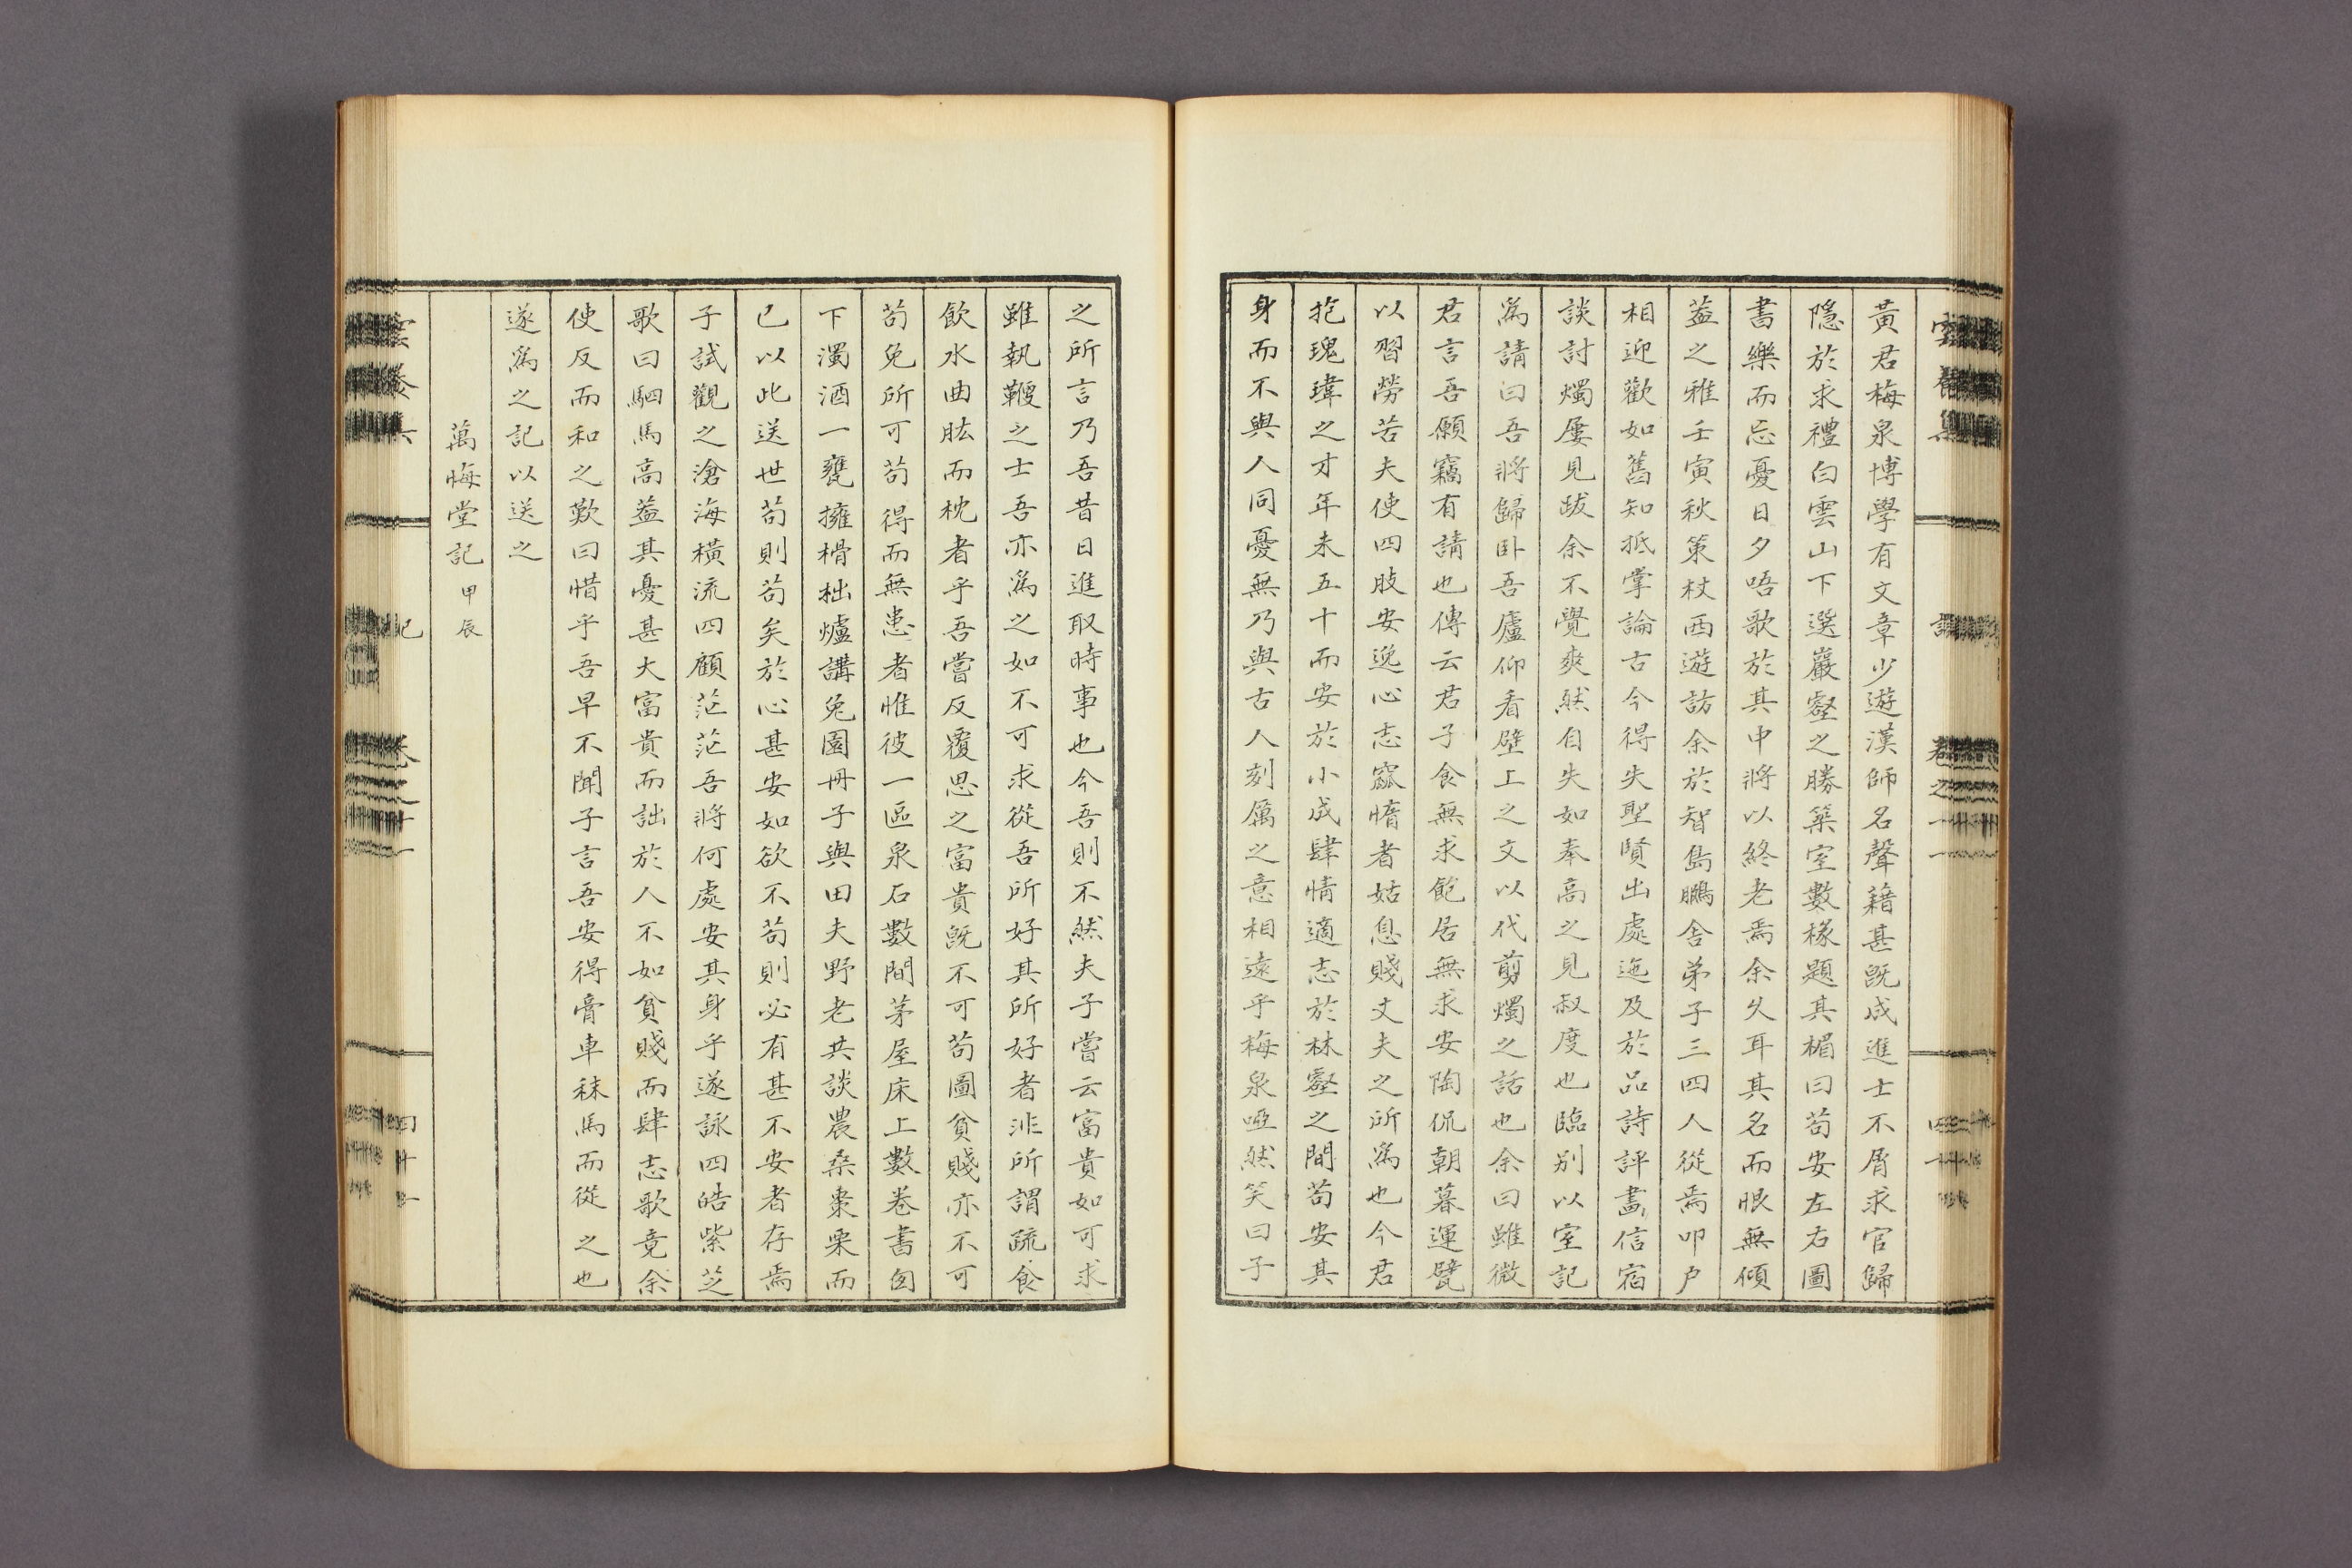 黃君梅泉博學有文章少遊漢師名聲藉甚旣成進士不屑求官歸
隱於求禮白雲山下選巖壑之勝築室數椽題其楣曰苟安左右圖
書樂而忘憂日夕唔歌於其中將以終老焉余久耳其名而恨無傾
蓋之雅壬寅秋策杖西遊訪余於智島鵬舍弟子三四人從焉叩戶
相迎歡如舊知抵掌論古今得失聖賢出處迤及於品詩評畵信宿
談討燭屢見跋余不覺爽然自失如奉高之見叔度也臨別以室記
爲請曰吾將歸臥吾廬仰看壁上之文以代剪燭之話也余曰雖微
君言吾願竊有請也傳云君子食無求飽居無求安陶侃朝暮運甓
以習勞苦夫使四肢安逸心志窳惰者姑息賤丈夫之所爲也今君
抱瑰瑋之才年未五十而安於小成肆情適志於林壑之間苟安其
身而不與人同憂無乃與古人刻厲之意相遠乎梅泉啞然笑曰子
之所言乃吾昔日進取時事也今吾則不然夫子嘗云富貴如可求
雖執鞭之士吾亦爲之如不可求從吾所好其所好者非所謂疏食
飮水曲肱而枕者乎吾嘗反覆思之富貴旣不可苟圖貧賤亦不可
苟免所可苟得而無患者惟彼一區泉石數間茅屋床上數卷書囱
下濁酒一甕擁榾柮爐講兔園冊子與田夫野老共談農桑棗栗而
已以此送世苟則苟矣於心甚安如欲不苟則必有甚不安者存焉
子試觀之滄海橫流四顧茫茫吾將何處安其身乎遂詠四皓紫芝
歌曰駟馬高蓋其憂甚大富貴而詘於人不如貧賤而肆志歌竟余
使反而和之歎曰惜乎吾早不聞子言吾安得膏車秣馬而從之也
遂爲之記以送之
萬悔堂記 甲辰